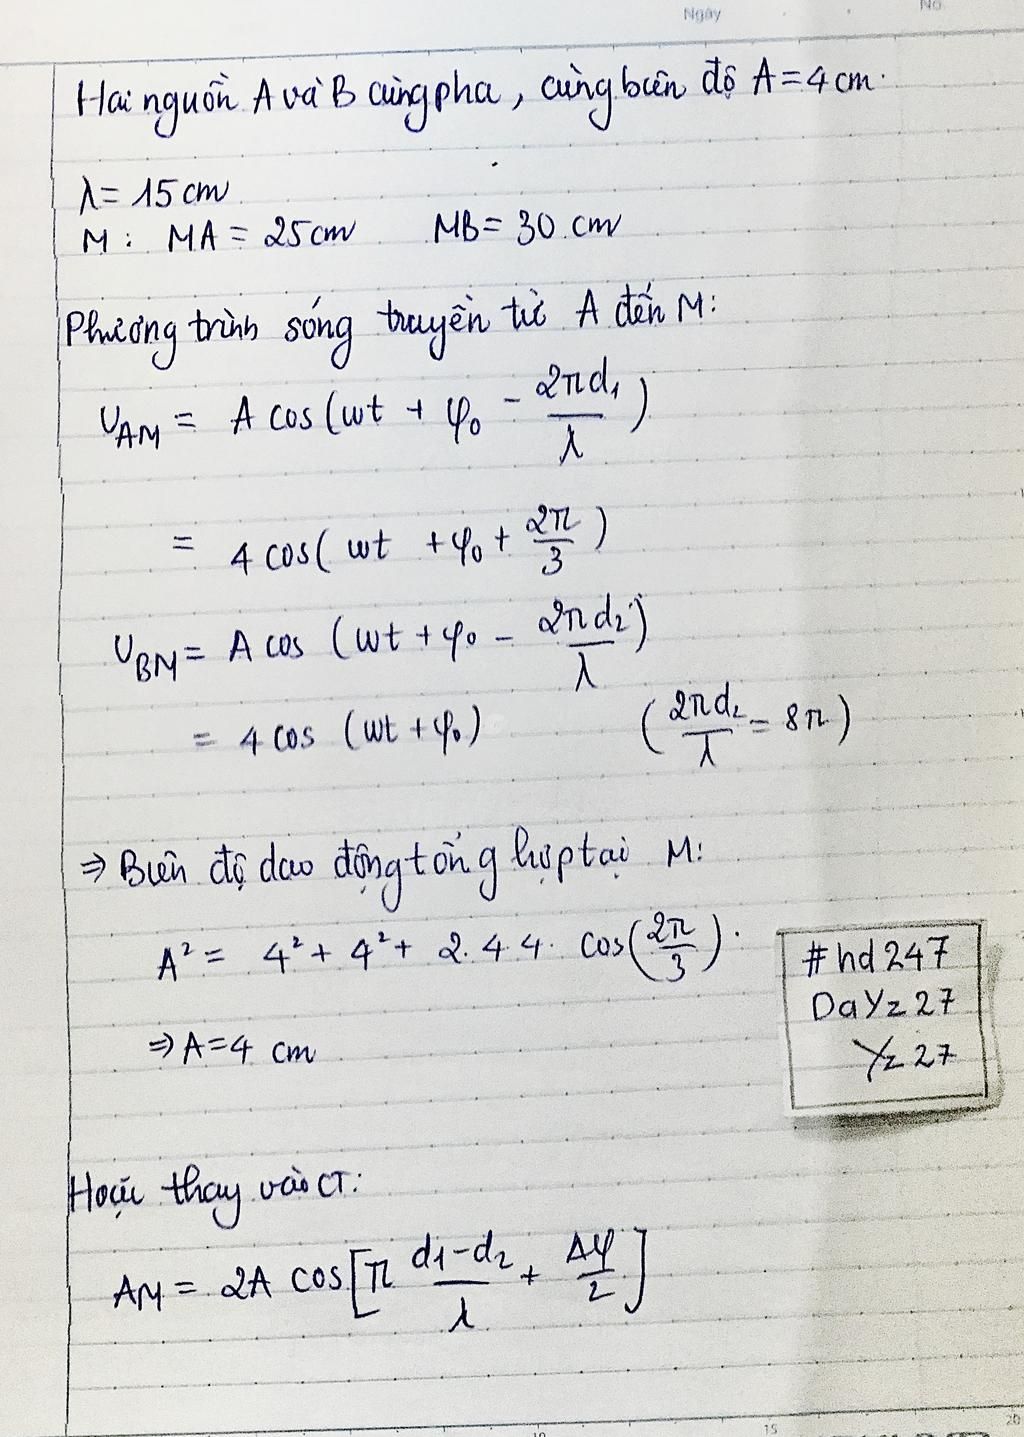 Ngày
No.
Hai nguồn A và B cùng pha, cùng biên độ A = 4 cm.
λ = 15 cm
M: MA = 25 cm MB = 30 cm
Phương trình sóng truyền từ A đến M:
U_AM = A cos(ωt + φ₀ - 2πd₁/λ)
= 4 cos(ωt + φ₀ + 2π/3)
U_BM = A cos (ωt + φ₀ - 2πd₂/λ)
= 4 cos (ωt + φ₀) (2πd₂/λ = 8π)
⇒ Biên độ dao động tổng hợp tại M:
A² = 4² + 4² + 2.4.4. cos(2π/3).
⇒ A = 4 cm
#hd247
DaYz27
Yz27
Hoặc thay vào CT:
A_M = 2A cos[π d₁-d₂/λ + Δφ/2]
10 15 20